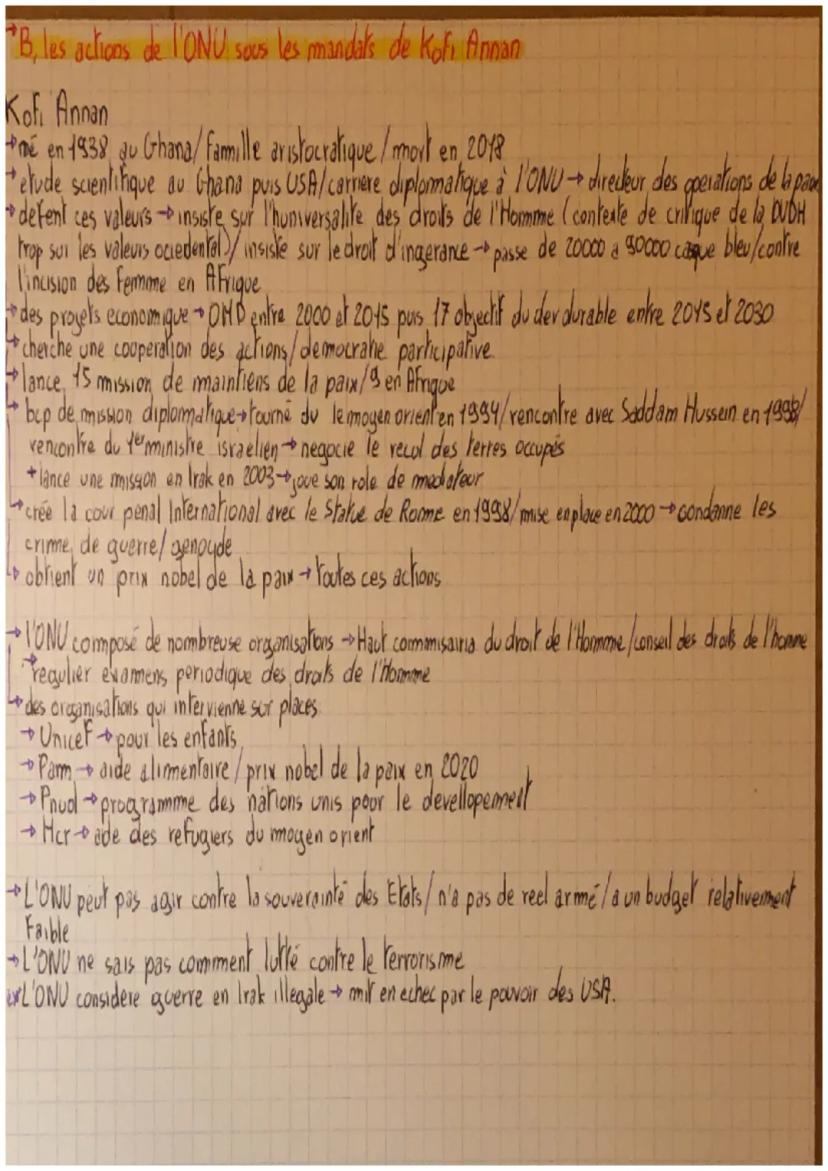 →B, les actions de l'ONU sous les mandats de Kofi Annan
Kofi Annan
→né en 1938 au Ghana/famille aristocratique/mort en 2018
→etude scientifique au Ghana puis USA/carriere diplomatique à l'ONU→directeur des operations de la paix
→defent ces valeurs→insiste sur l'huniversalite des droits de l'Homme (contexte de critique de la DUDH
trop sur les valeurs occiedental)/insiste sur le droit d'ingerance→passe de 20000 a 90000 caque bleu/contre
l'incision des femme en Afrique
→des projets economique→OMD entre 2000 et 2015 puis 17 objectif du dev durable entre 2015 et 2030
→cherche une cooperation des actions/democratie participative
→lance 15 mission de maintiens de la paix/9 en Afrique
→bcp de mission diplomatique→tourné du le moyen orient en 1994/rencontre avec Saddam Hussein en 1998/
rencontre du 1er ministre israelien→negocie le recul des terres occupés
+lance une mission en Irak en 2003→joue son role de mediateur
→crée la cour penal International avec le Statue de Rome en 1998/mise en place en 2000→condanne les
crime de guerre/genocyde
→obtient un prix nobel de la paix→toutes ces actions
→l'ONU composé de nombreuse organisations→Haut commisairia du droit de l'Homme/conseil des droits de l'homme
→regulier examens periodique des droits de l'Homme
→des organisations qui intervienne sur places
→Unicef→pour les enfants
→Pam→aide alimentaire/prix nobel de la paix en 2020
→Pnud→programme des nations unis pour le devellopement
→Hcr→aide des refugiers du moyen orient
→L'ONU peut pas agir contre la souverainté des Etats/n'a pas de reel armé/a un budget relativement
faible
→L'ONU ne sais pas comment lutté contre le terrorisme
ex L'ONU considere guerre en Irak illegale→mit en echec par le pouvoir des USA.